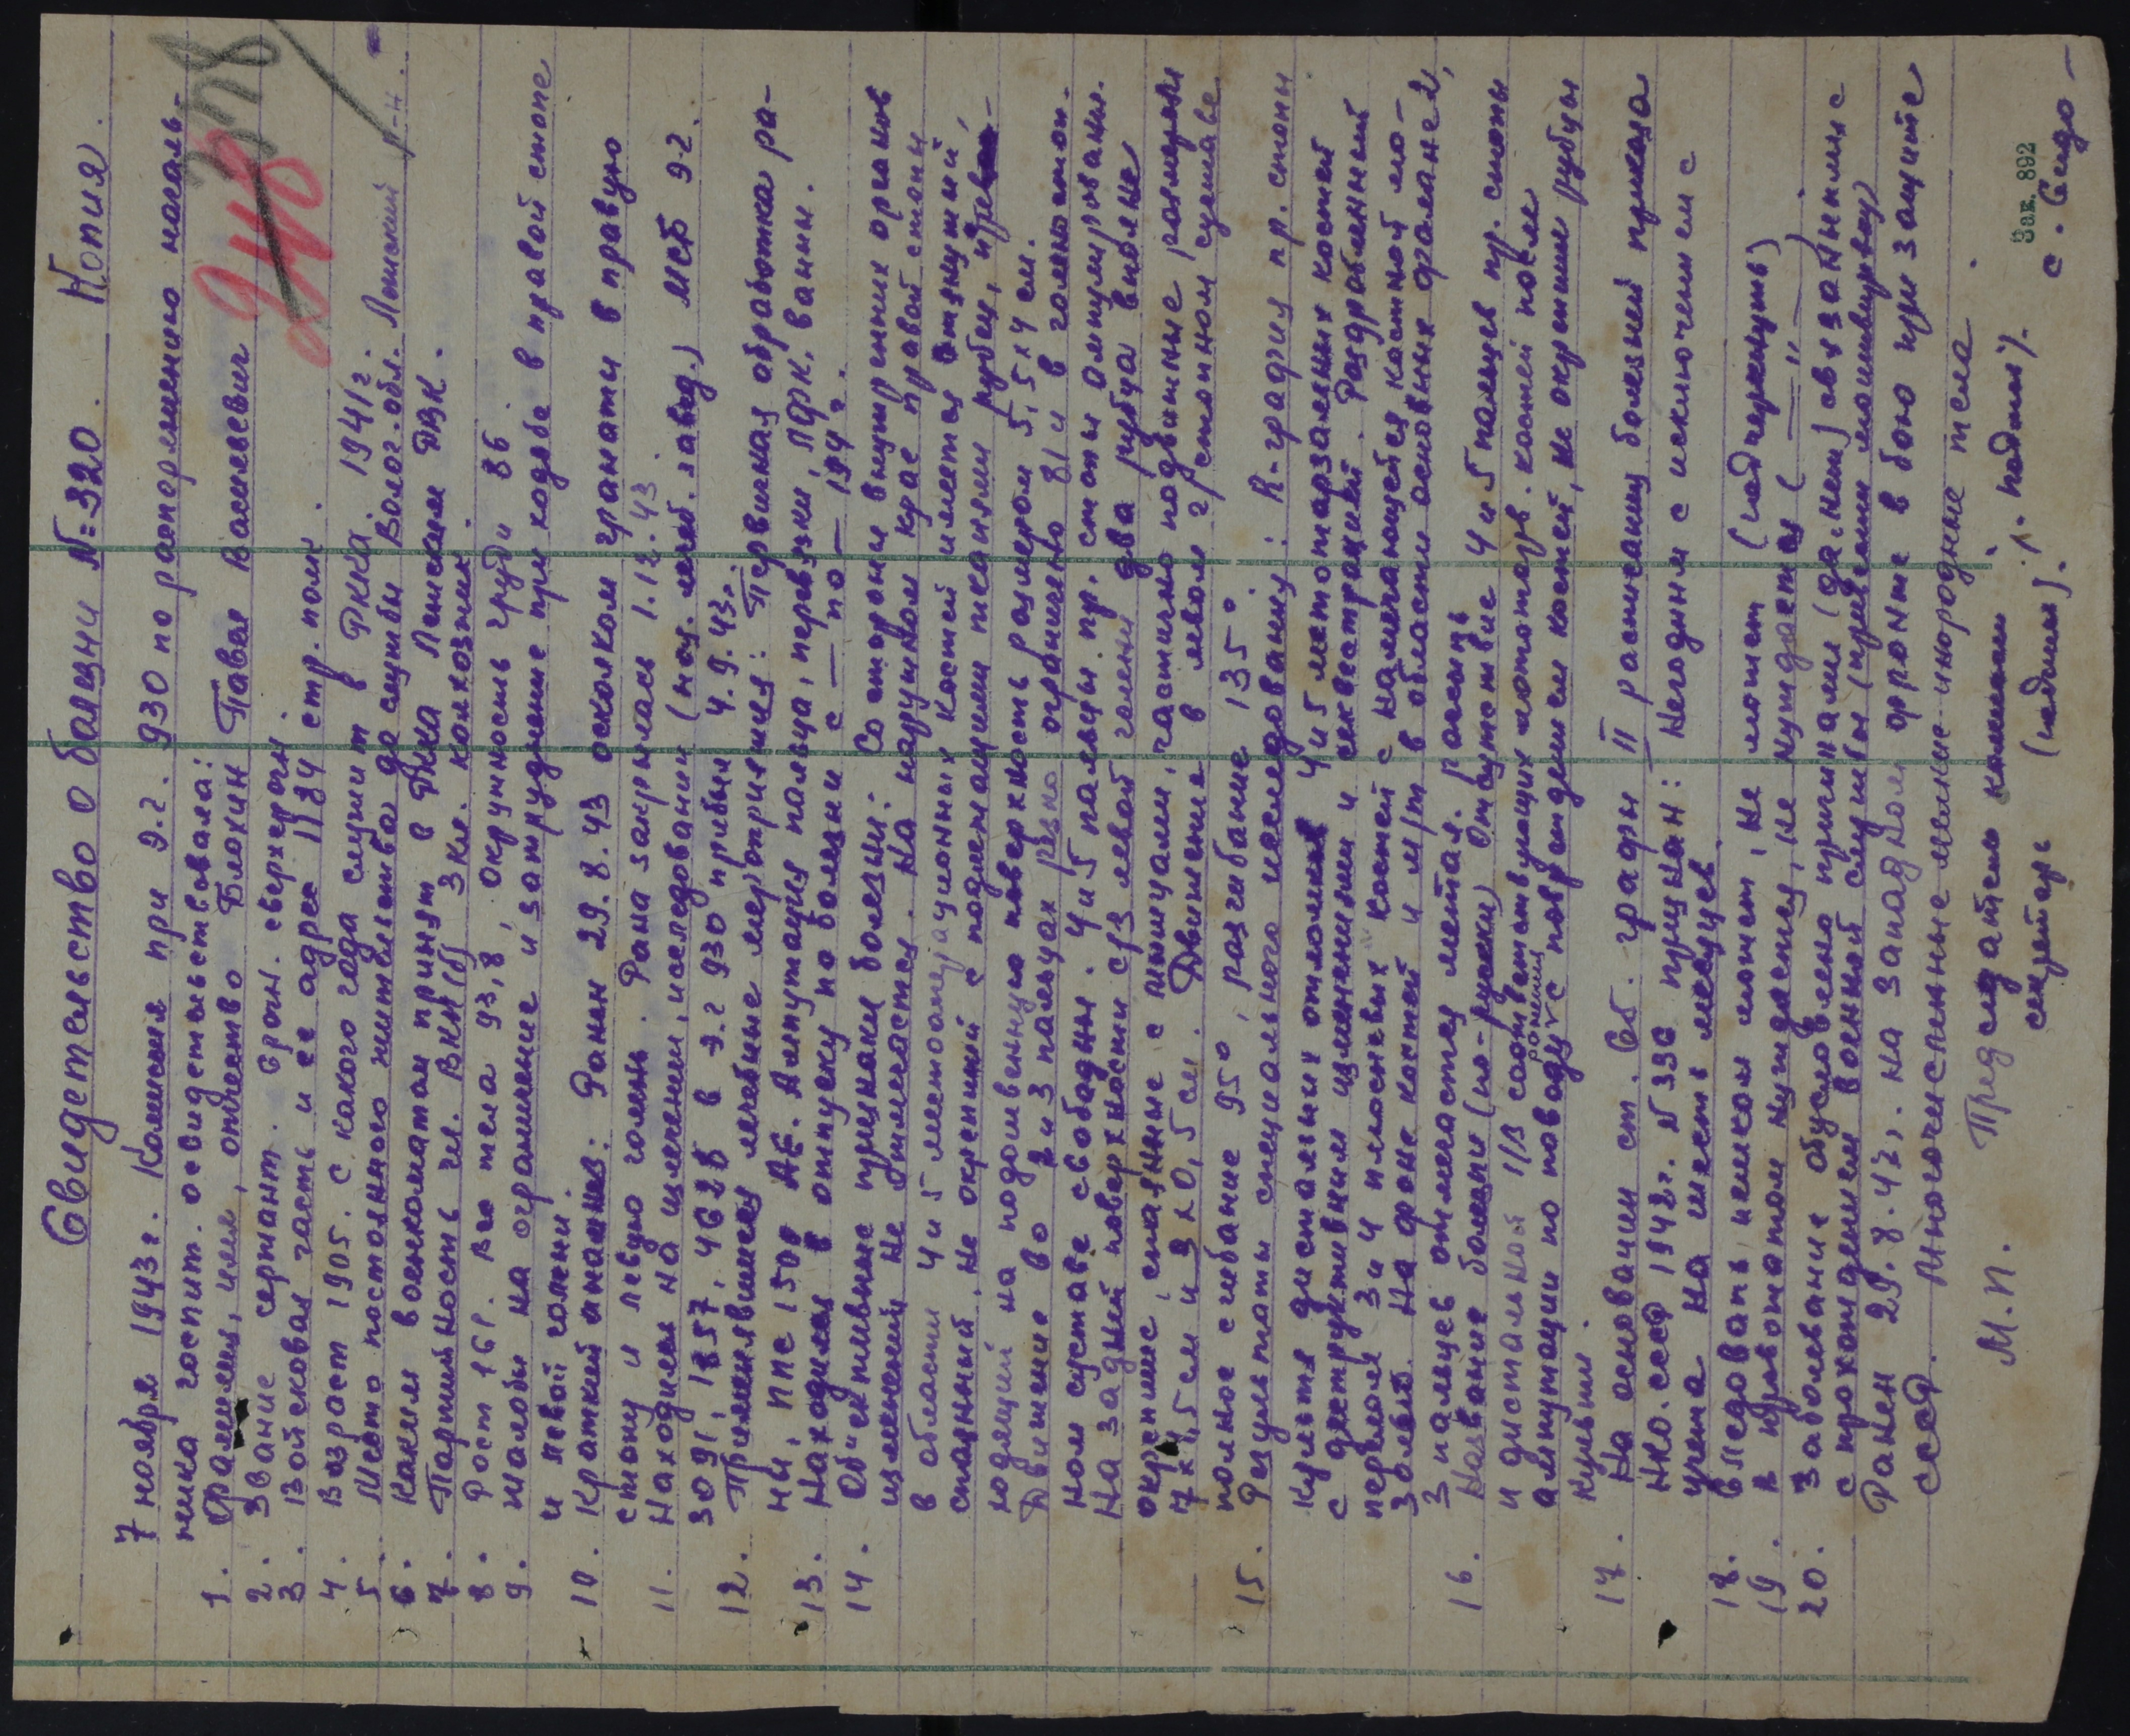 Свидетельство о болезни №=320. Копия.
348
7 ноября 1943 г. Комиссия при э.г. 930 по распоряжению началь-
ника госпит. освидетельствовала:
1. Фамилия, имя, отчество Блохин Павел Васильевич
2. Звание сержант. Срочн. сверхсрочн.
3. Войсковая часть и ее адрес 1184 стр. полк.
4. Возраст 1905. с какого года служит в РККА. 1941 г.
5. Место постоянного жительства до службы Волог. обл. Ленский р-н.
6. Каким военкоматом принят в РККА Ленским РВК.
7. Партийность чл. ВКП(б) 3 кл. колхозник.
8. Рост 161. Вес тела 93,8, окружность груди 86.
9. Жалобы на ограничение и затруднение при ходьбе в правой стопе
и левой голени.
10. Краткий анамнез: Ранен 29.8.43 осколком гранаты в правую
стопу и левую голень. Рана закрылась 1.12.43.
11. Находился на излечении, исследовании (наз. лечеб. завед.) МСБ 92.
3091, 1857, 4628 в э.г 930 прибыл 4.9.43г.
12. Применявшиеся лечебные мероприятия: Первичная обработка ра-
ны, ППС 1500 АЕ. Ампутация пальца, перевязки, ЛФК, ванны.
13. Находился в отпуску по болезни с — по — 194 г.
14. Объективные признаки болезни: Со стороны внутренних органов
изменений не отмечается. На наружном крае правой стопы
в области 4 и 5 метатарзационных костей имеется втянутый,
спаянный, не окрепший с подлежащими тканями рубец, пере-
ходящий на подошвенную поверхность размером 5,5х4 см.
Движение во 2 и 3 пальцах резко ограничено 81 и в голеностоп-
ном суставе свободны. 4 и 5 пальцы пр. стопы ампутированы.
На задней поверхности с/3 левой голени два рубца вполне
окрепшие, спаянные с мышцами, частично подвижные размером
7х1,5 см и 9х0,5 см. Движение в левом г/стопном суставе
полное сгибание 95°, разгибание 135°.
15. Результаты специального исследования: R-графия пр. стопы
культя дистальных отломков 4 и 5 метатарзальных костей
с деструктивными изменениями и секвестрацией. Раздробленный
перелом 3 и 4 плюсневых костей с намечающейся костной мо-
золью. На фоне костей и м/т в области основных фаланг 2,
3 пальцев отмечается метал. россыпь
16. Название болезни (по-русски) Отсутствие 4 и 5 пальцев пр. стопы
и дистальной 1/3 соответствующих метатарз. костей после ранения
ампутации по поводу с повреждением костей, не окрепшие рубцы
культи.
17. На основании ст. 6б. графы II расписания болезней приказа
НКО. СССР 1942 г. №336 признан: Негодным с исключением с
учета на шесть месяцев.
18. Следовать пешком может, не может (подчеркнуть)
19. В провожатом нуждается, не нуждается ( — " — ).
20. Заболевание обусловлено причинами (да, нет) связанными с
с прохождением военной службы (привести мотивировку)
Ранен 29.8.43г. на западном фронте в бою при защите
СССР. Многочисленные мелкие инородные тела.
М.П. Председатель комиссии. п. подпись.
секретарь (подпись). с. Сидо-
Зак. 892